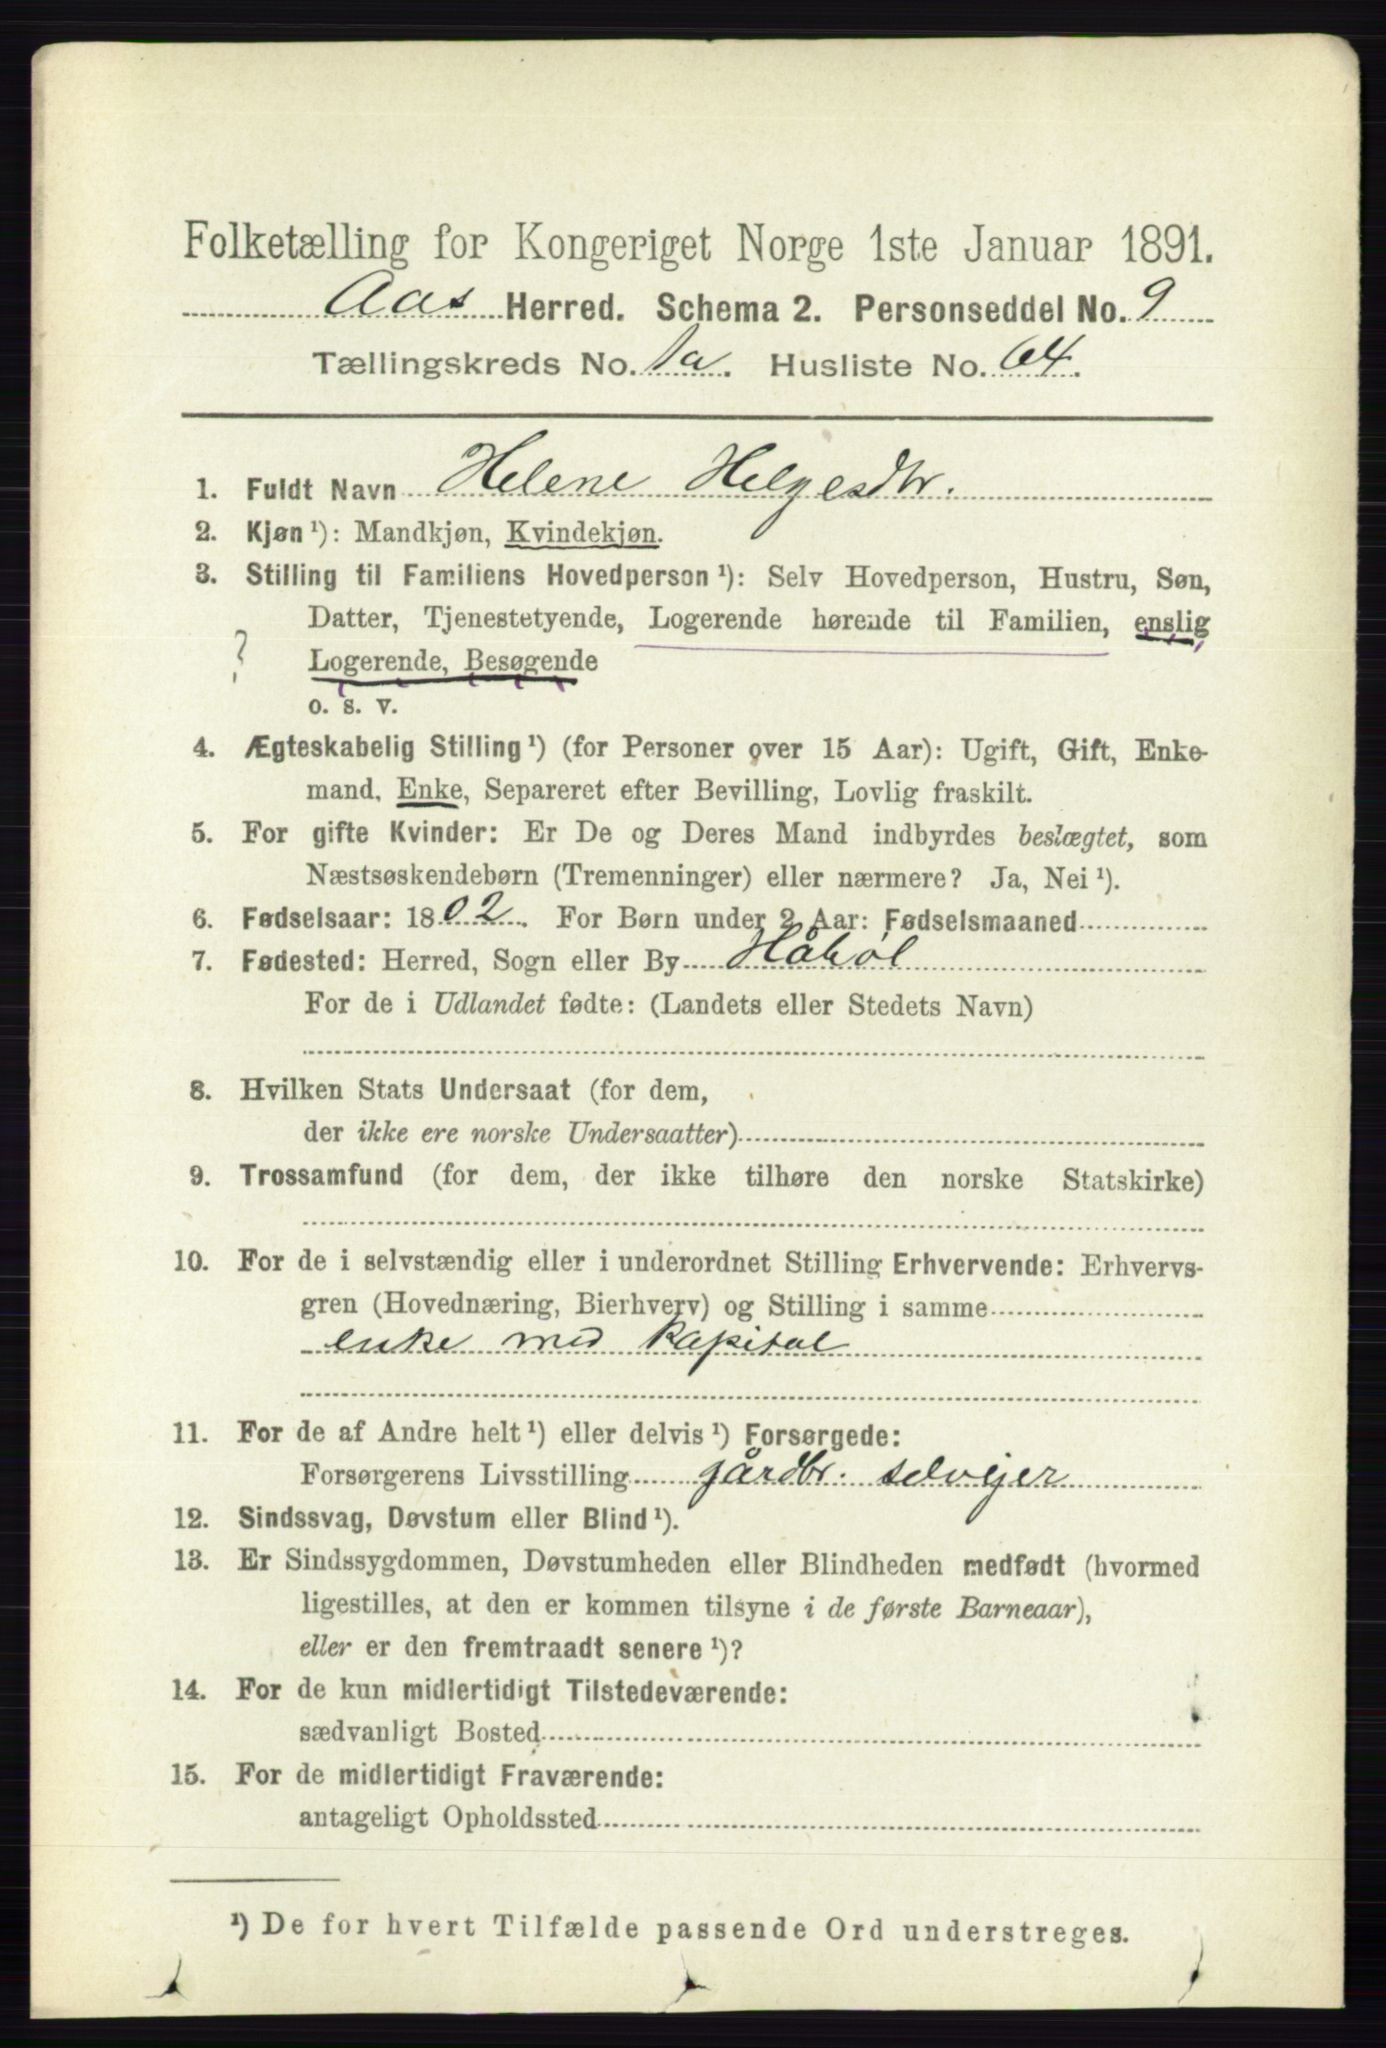 Folketælling for Kongeriget Norge 1ste Januar 1891.
Aas Herred. Schema 2. Personseddel No. 9
Tællingskreds No. 1a. Husliste No. 64.
1. Fuldt Navn Helene Helgesdtr.
2. Kjøn ¹): Mandkjøn, Kvindekjøn.
3. Stilling til Familiens Hovedperson ¹): Selv Hovedperson, Hustru, Søn,
Datter, Tjenestetyende, Logerende hørende til Familien, enslig
? Logerende, Besøgende
o. s. v.
4. Ægteskabelig Stilling ¹) (for Personer over 15 Aar): Ugift, Gift, Enke-
mand, Enke, Separeret efter Bevilling, Lovlig fraskilt.
5. For gifte Kvinder: Er De og Deres Mand indbyrdes beslægtet, som
Næstsøskendebørn (Tremenninger) eller nærmere? Ja, Nei ¹).
6. Fødselsaar: 1802. For Børn under 2 Aar: Fødselsmaaned
7. Fødested: Herred, Sogn eller By Håbøl
For de i Udlandet fødte: (Landets eller Stedets Navn)
8. Hvilken Stats Undersaat (for dem,
der ikke ere norske Undersaatter)
9. Trossamfund (for dem, der ikke tilhøre den norske Statskirke)
10. For de i selvstændig eller i underordnet Stilling Erhvervende: Erhvervs-
gren (Hovednæring, Bierhverv) og Stilling i samme
enke med kapital
11. For de af Andre helt ¹) eller delvis ¹) Forsørgede:
Forsørgerens Livsstilling gårdbr. selvejer
12. Sindssvag, Døvstum eller Blind ¹).
13. Er Sindssygdommen, Døvstumheden eller Blindheden medfødt (hvormed
ligestilles, at den er kommen tilsyne i de første Barneaar),
eller er den fremtraadt senere ¹)?
14. For de kun midlertidigt Tilstedeværende:
sædvanligt Bosted
15. For de midlertidigt Fraværende:
antageligt Opholdssted
¹) De for hvert Tilfælde passende Ord understreges.